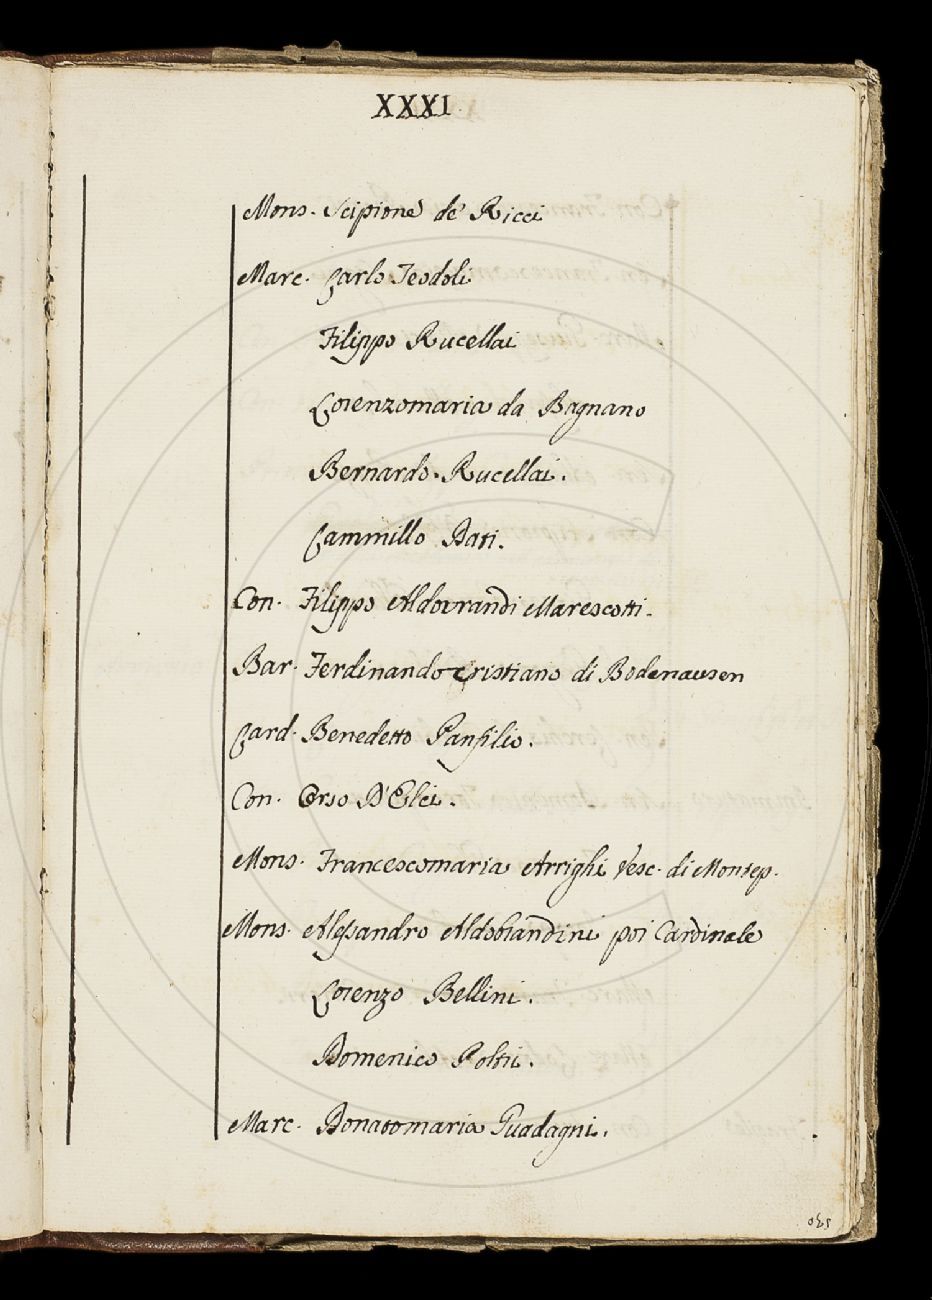 XXXI
Mons. Scipione de' Ricci
Marc. Carlo Teodoli
Filippo Rucellai
Lorenzomaria da Bagnano
Bernardo Rucellai.
Cammillo Dati.
Con. Filippo Aldovrandi Marescotti.
Bar. Ferdinando Cristiano di Bodenausen
Card. Benedetto Panfilio.
Con. Orso D'Elci.
Mons. Francescomaria Arrighi Vesc. di Montep.
Mons. Alessandro Aldobrandini poi Cardinale
Lorenzo Bellini.
Domenico Poltri.
Marc. Donatomaria Guadagni.